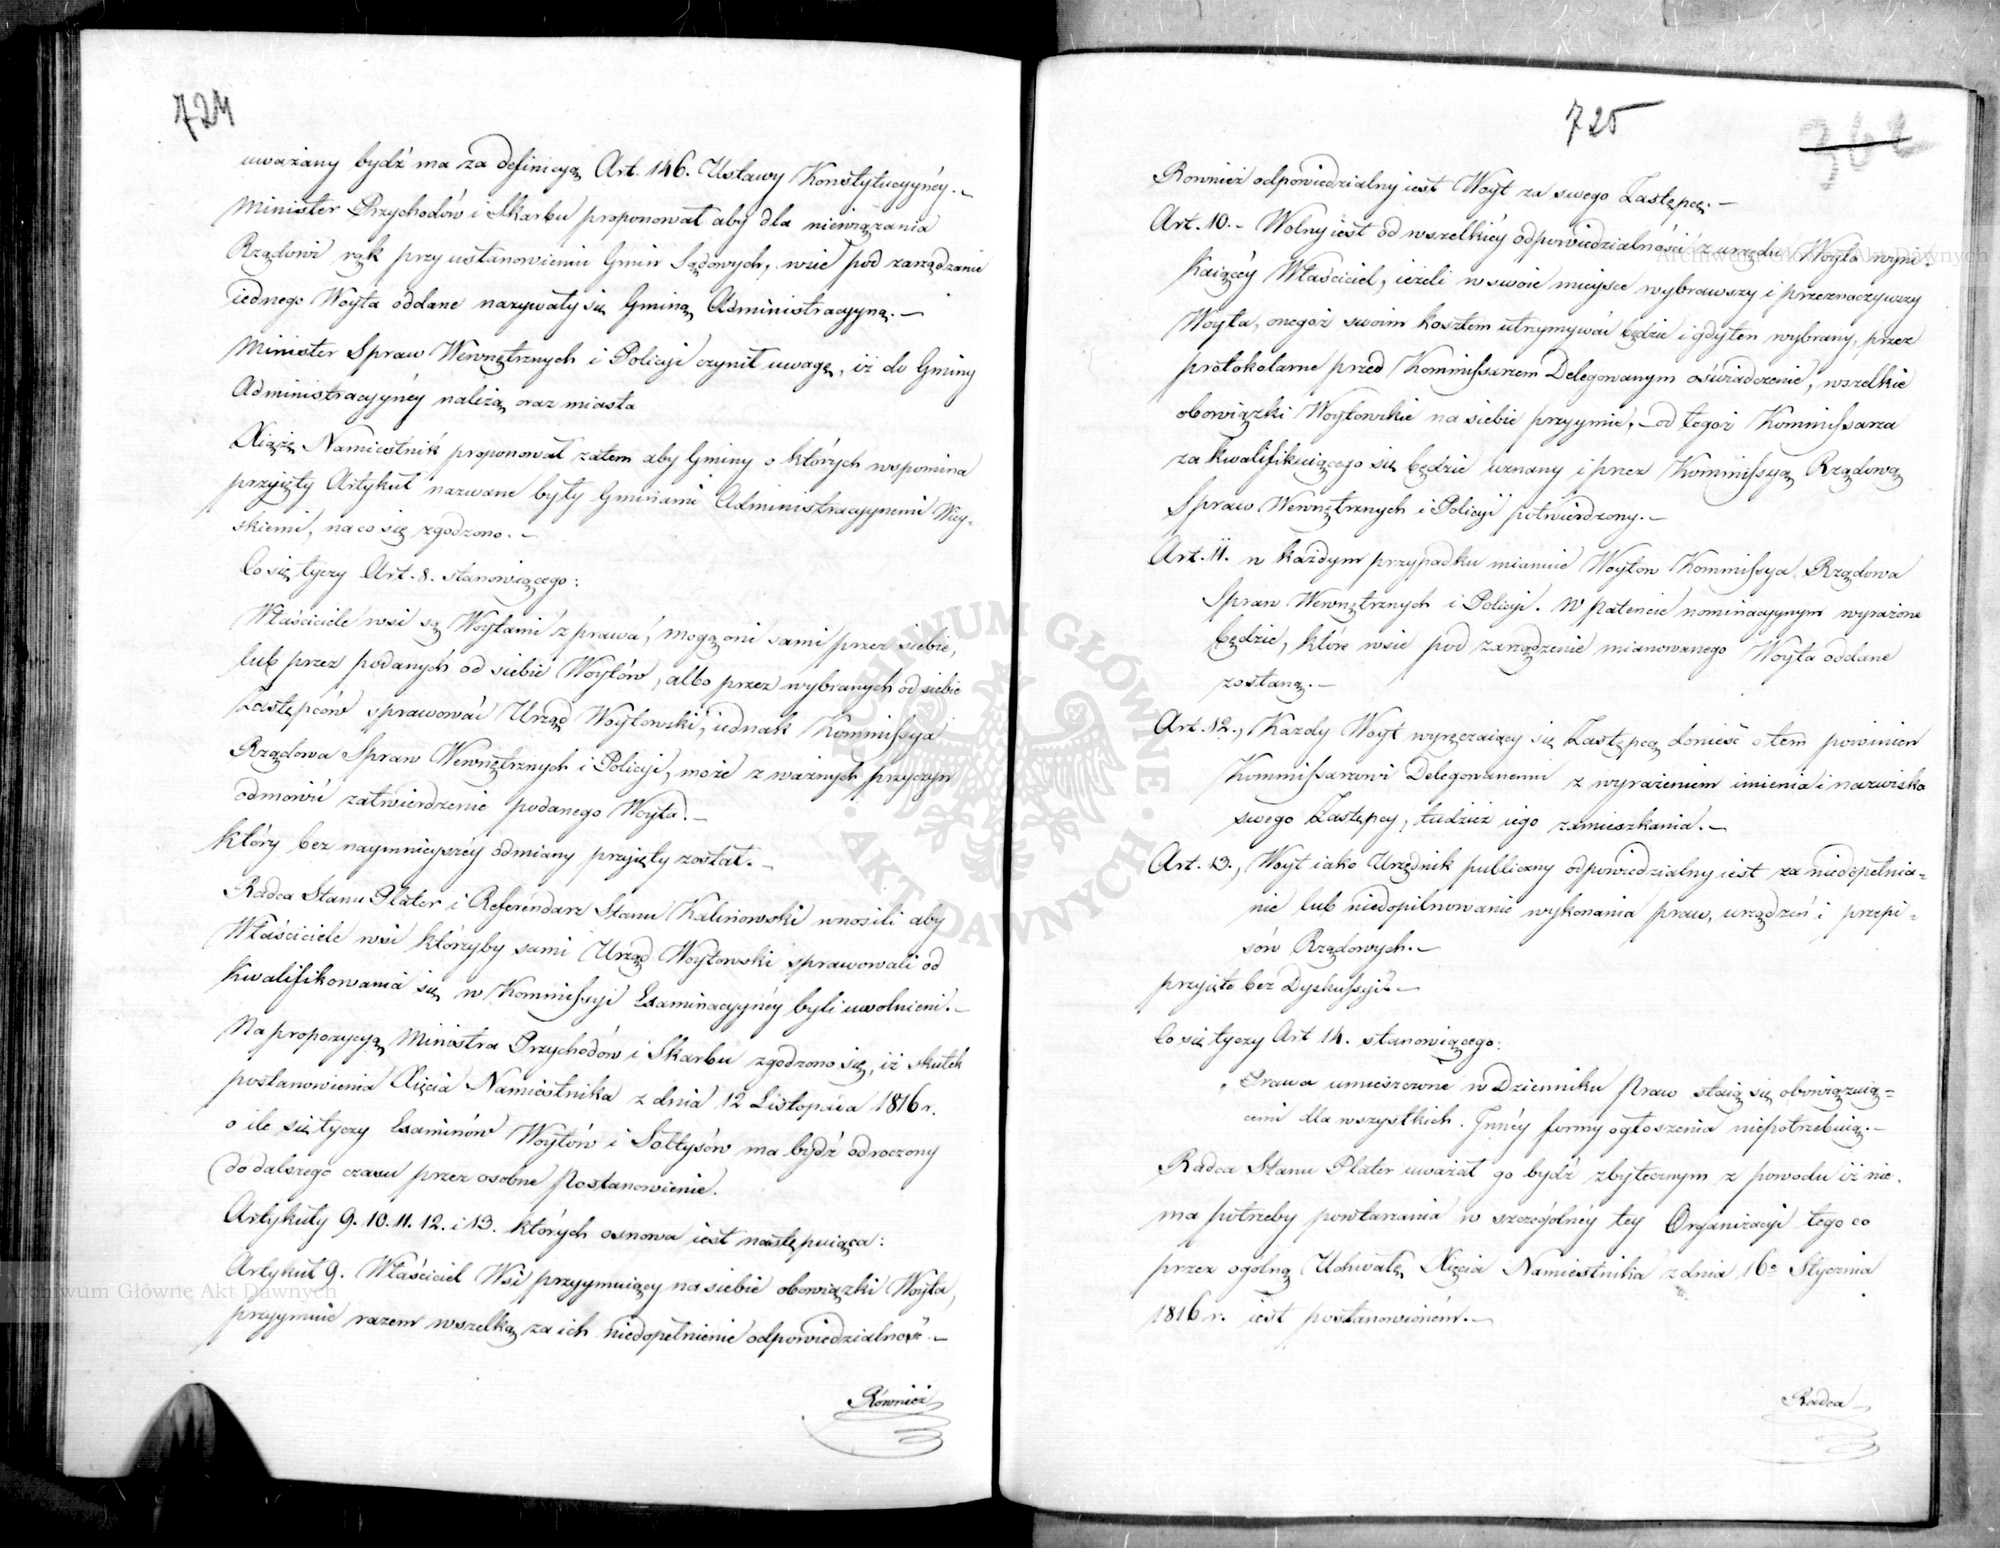 724
uważany bydź ma za definicyą Art. 146. Ustawy Konstytucyynéy.-
Minister Przychodów i Skarbu proponował aby dla niewiązania
Rządowi rąk przy ustanowieniu Gmin Sądowych, wsie pod zarządzanie
iednego Woyta oddane nazywały się Gminą Administracyyną.-
Minister Spraw Wewnętrznych i Policyi czynił uwagę, iż do Gminy
Administracyynéy należą oraz miasta
Xiążę Namiestnik proponował zatem aby Gminy o których wspomina
przyięty Artykuł nazwane były Gminami Administracyynemi Wiey-
skiemi, na co się zgodzono.-
Co się tyczy Art. 8. stanowiącego:
Właściciele wsi są Woytami z prawa, mogą oni sami przez siebie,
lub przez podanych od siebie Woytów, albo przez wybranych od siebie
Zastępców sprawować Urząd Woytowski, iednak Kommissya
Rządowa Spraw Wewnętrznych i Policyi, może z ważnych przyczyn
odmówić zatwierdzenie podanego Woyta.-
który bez naymnieyszéy odmiany przyięty został.-
Radca Stanu Plater i Referendarz Stanu Kalinowski wnosili aby
Właściciele wsi którzyby sami Urząd Woytowski sprawowali od
kwalifikowania się w Kommissyi Examinacyynéy byli uwolnieni.-
Na propozycyą Ministra Przychodów i Skarbu zgodzono się, iż skutek
postanowienia Xięcia Namiestnika z dnia 12 Listopada 1816 r.
o ile się tyczy Examinów Woytów i Sołtysów ma bydź odroczony
do dalszego czasu przez osobne Postanowienie.
Artykuły 9. 10. 11. 12. i 13. których osnowa iest następuiąca:
Artykuł 9. Właściciel Wsi przyymuiący na siebie obowiązki Woyta,
przyymuie razem wszelką za ich niedopełnienie odpowiedzialność.-
Również
725
Rownież odpowiedzialny iest Woyt za swego Zastępcę.-
Art. 10.- Wolny iest od wszelkiéy odpowiedzialności z urzędu Woyta wyni-
kaiącéy Właściciel, ieżeli w swoie mieysce wybrawszy i przeznaczywszy
Woyta, onegoż swoim kosztem utrzymywać będzie i gdy ten wybrany, przez
protokolarne przed Kommissarzem Delegowanym oświadczenie, wszelkie
obowiązki Woytowskie na siebie przyymie, - od tegoż Kommissarza
za kwalifikuiącego się będzie uznany i przez Kommissyą Rządową
Spraw Wewnętrznych i Policyi potwierdzony.-
Art. 11. w każdym przypadku mianuie Woytów Kommissya Rządowa
Spraw Wewnętrznych i Policyi. W patencie nominacyynym wyrażone
będzie, które wsie pod zarządzenie mianowanego Woyta oddane
zostaną.-
Art. 12., Każdy Woyt wyręczaiący się Zastępcą donieść o tem powinien
Kommissarzowi Delegowanemu z wyrażeniem imienia i nazwiska
swego Zastępcy, tudzież iego zamieszkania.-
Art. 13., Woyt iako Urzędnik publiczny odpowiedzialny iest za niedopełnia=
nie lub niedopilnowanie wykonania praw, urządzeń i przepi-
sów Rządowych.-
przyięto bez Dyskussyi.-
Co się tyczy Art 14. stanowiącego:
Prawa umieszczone w Dzienniku Praw staią się obowiązuią=
cemi dla wszystkich. Innéy formy ogłoszenia niepotrzebuią.-
Radca Stanu Plater uważał go bydź zbytecznym z powodu iż nie
ma potrzeby powtarzania w szczególnéy téy Organizacyi tego co
przez ogólną Uchwałę Xięcia Namiestnika z dnia 16o Stycznia
1816 r. iest postanowioném.-
Radca
ARCHIWUM GŁÓWNE AKT DAWNYCH
Archiwum Główne Akt Dawnych
Archiwum Główne Akt Dawnych